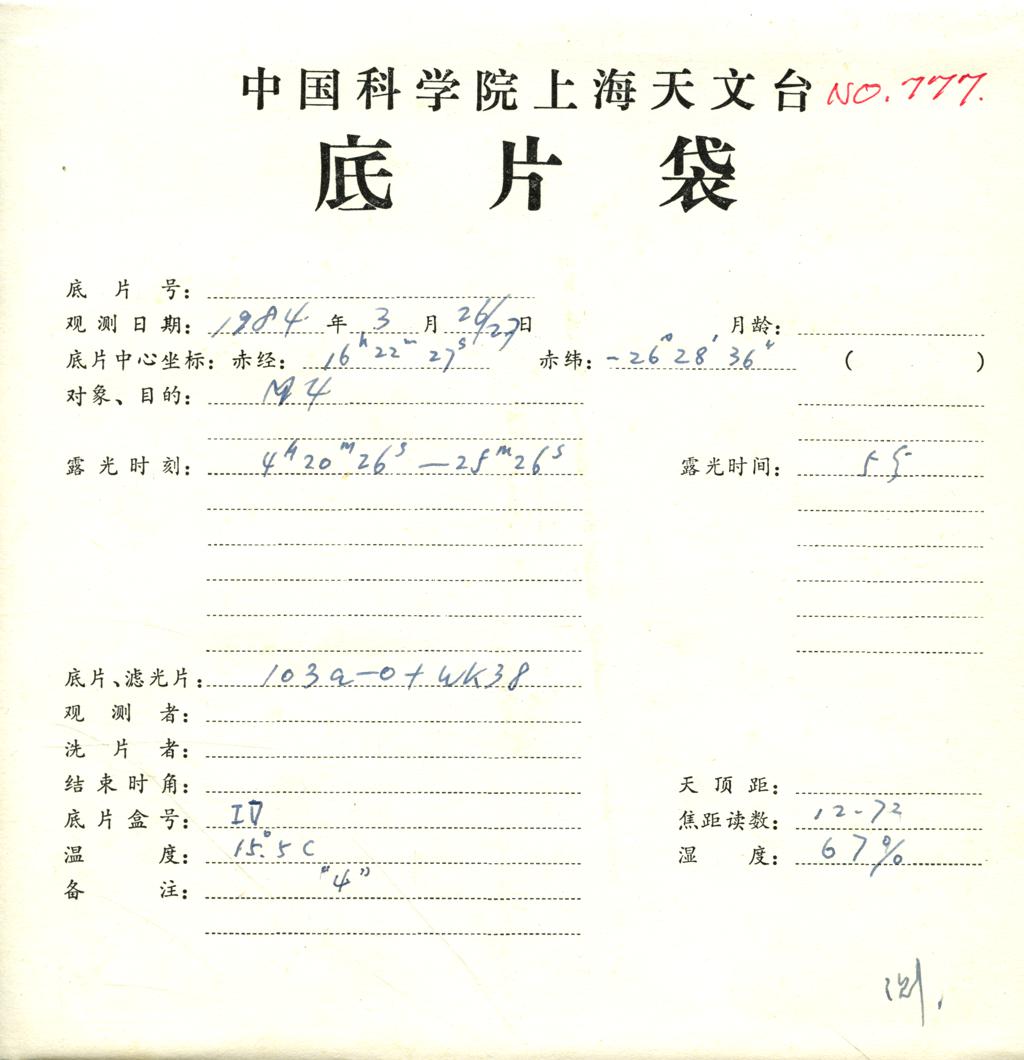 中国科学院上海天文台 NO.777.
底片袋
底片号:
观测日期: 1984年3月26/27日 月龄:
底片中心坐标: 赤经: 16h22m27s 赤纬: -26°28′36″ ( )
对象、目的: M4
露光时刻: 4h20m26s—25m26s 露光时间: 5分
底片、滤光片: 103a-O+WK38
观测者:
洗片者:
结束时角: 天顶距:
底片盒号: IV 焦距读数: 12-72
温度: 15°.5C 湿度: 67%
备注: "4"